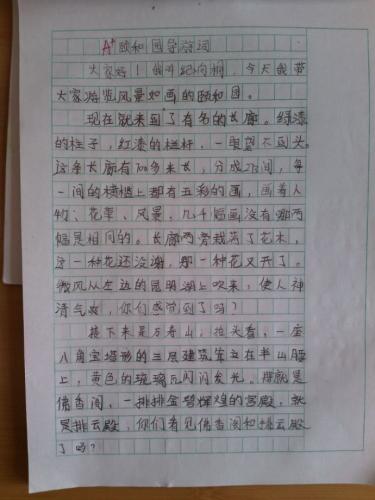 A+ 颐和园导游词
大家好！我叫纪向桐，今天我带
大家游览风景如画的颐和园。
现在就来到了有名的长廊。绿漆
的柱子，红漆的栏杆，一眼望不到头。
这条长廊有700多米长，分成273间，每
一间的横槛上都有五彩的画，画着人
物、花草、风景，几千幅画没有哪两
幅是相同的。长廊两旁栽满了花木，
这一种花还没谢，那一种花又开了。
微风从左边的昆明湖上吹来，使人神
清气爽，你们感觉到了吗？
接下来是万寿山，抬头看，一座
八角宝塔形的三层建筑耸立在半山腰
上，黄色的琉璃瓦闪闪发光。那就是
佛香阁，一排排金碧辉煌的宫殿，就
是排云殿，你们看见佛香阁和排云殿
了吗？